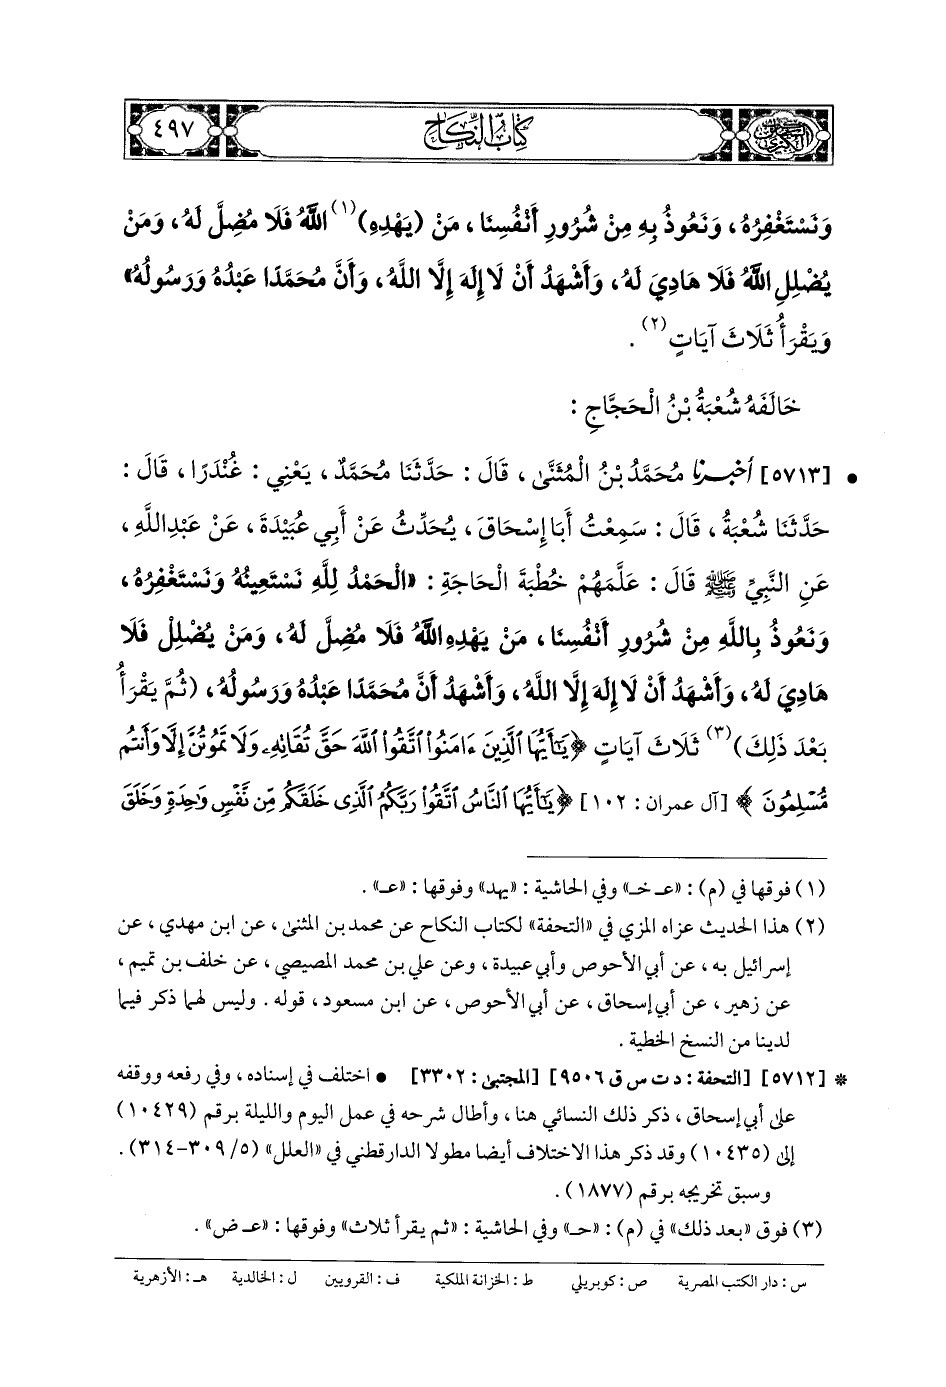 السنن الكبرى
كتاب النكاح
٤٩٧
وَنَسْتَغْفِرُهُ، وَنَعُوذُ بِهِ مِنْ شُرُورِ أَنْفُسِنَا، مَنْ (يَهْدِهِ)(١) اللَّهُ فَلَا مُضِلَّ لَهُ، وَمَنْ
يُضْلِلِ اللَّهُ فَلَا هَادِيَ لَهُ، وَأَشْهَدُ أَنْ لَا إِلَهَ إِلَّا اللَّهُ، وَأَنَّ مُحَمَّدًا عَبْدُهُ وَرَسُولُهُ»
وَيَقْرَأُ ثَلَاثَ آيَاتٍ(٢).
خَالَفَهُ شُعْبَةُ بْنُ الْحَجَّاجِ :
• [٥٧١٣] أخبرنا مُحَمَّدُ بْنُ الْمُثَنَّى، قَالَ : حَدَّثَنَا مُحَمَّدٌ، يَعْنِي : غُنْدَرًا، قَالَ :
حَدَّثَنَا شُعْبَةُ، قَالَ : سَمِعْتُ أَبَا إِسْحَاقَ، يُحَدِّثُ عَنْ أَبِي عُبَيْدَةَ، عَنْ عَبْدِاللَّهِ،
عَنِ النَّبِيِّ ﷺ قَالَ : عَلَّمَهُمْ خُطْبَةَ الْحَاجَةِ : «الْحَمْدُ لِلَّهِ نَسْتَعِينُهُ وَنَسْتَغْفِرُهُ،
وَنَعُوذُ بِاللَّهِ مِنْ شُرُورِ أَنْفُسِنَا، مَنْ يَهْدِهِ اللَّهُ فَلَا مُضِلَّ لَهُ، وَمَنْ يُضْلِلْ فَلَا
هَادِيَ لَهُ، وَأَشْهَدُ أَنْ لَا إِلَهَ إِلَّا اللَّهُ، وَأَشْهَدُ أَنَّ مُحَمَّدًا عَبْدُهُ وَرَسُولُهُ، (ثُمَّ يَقْرَأُ
بَعْدَ ذَلِكَ)(٣) ثَلَاثَ آيَاتٍ ﴿يَٰٓأَيُّهَا ٱلَّذِينَ ءَامَنُوا۟ ٱتَّقُوا۟ ٱللَّهَ حَقَّ تُقَاتِهِۦ وَلَا تَمُوتُنَّ إِلَّا وَأَنتُم
مُّسْلِمُونَ﴾ [آل عمران : ١٠٢] ﴿يَٰٓأَيُّهَا ٱلنَّاسُ ٱتَّقُوا۟ رَبَّكُمُ ٱلَّذِى خَلَقَكُم مِّن نَّفْسٍ وَٰحِدَةٍ وَخَلَقَ
(١) فوقها في (م) : «عـ خـ» وفي الحاشية : «يهد» وفوقها : «عـ» .
(٢) هذا الحديث عزاه المزي في «التحفة» لكتاب النكاح عن محمد بن المثنى، عن ابن مهدي، عن
إسرائيل به، عن أبي الأحوص وأبي عبيدة، وعن علي بن محمد المصيصي، عن خلف بن تميم،
عن زهير، عن أبي إسحاق، عن أبي الأحوص، عن ابن مسعود، قوله . وليس لهما ذكر فيما
لدينا من النسخ الخطية .
* [٥٧١٢] [التحفة : د ت س ق ٩٥٠٦] [المجتبى : ٣٣٠٢] • اختلف في إسناده، وفي رفعه ووقفه
على أبي إسحاق، ذكر ذلك النسائي هنا، وأطال شرحه في عمل اليوم والليلة برقم (١٠٤٢٩)
إلى (١٠٤٣٥) وقد ذكر هذا الاختلاف أيضا مطولا الدارقطني في «العلل» (٥/ ٣٠٩-٣١٤) .
وسبق تخريجه برقم (١٨٧٧) .
(٣) فوق «بعد ذلك» في (م) : «حـ» وفي الحاشية : «ثم يقرأ ثلاث» وفوقها : «عـ ض» .
س : دار الكتب المصرية ص : كوبريلي ط : الخزانة الملكية ف : القرويين ل : الخالدية هـ : الأزهرية